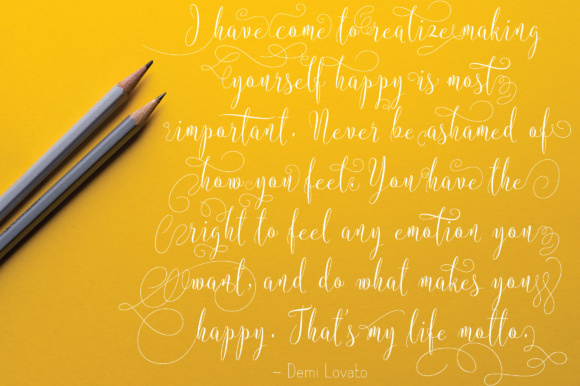 I have come to realize making
yourself happy is most
important. Never be ashamed of
how you feel. You have the
right to feel any emotion you
want, and do what makes you
happy. That's my life motto.
– Demi Lovato